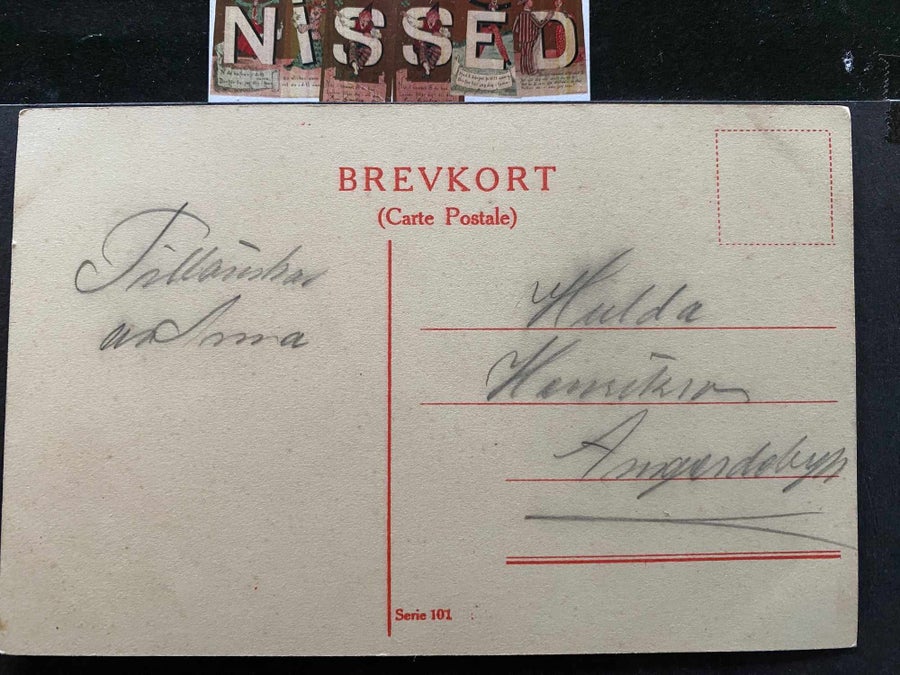 NISSED
BREVKORT
(Carte Postale)
Tillönskas
av Anna
Hulda
Henrikson
Serie 101